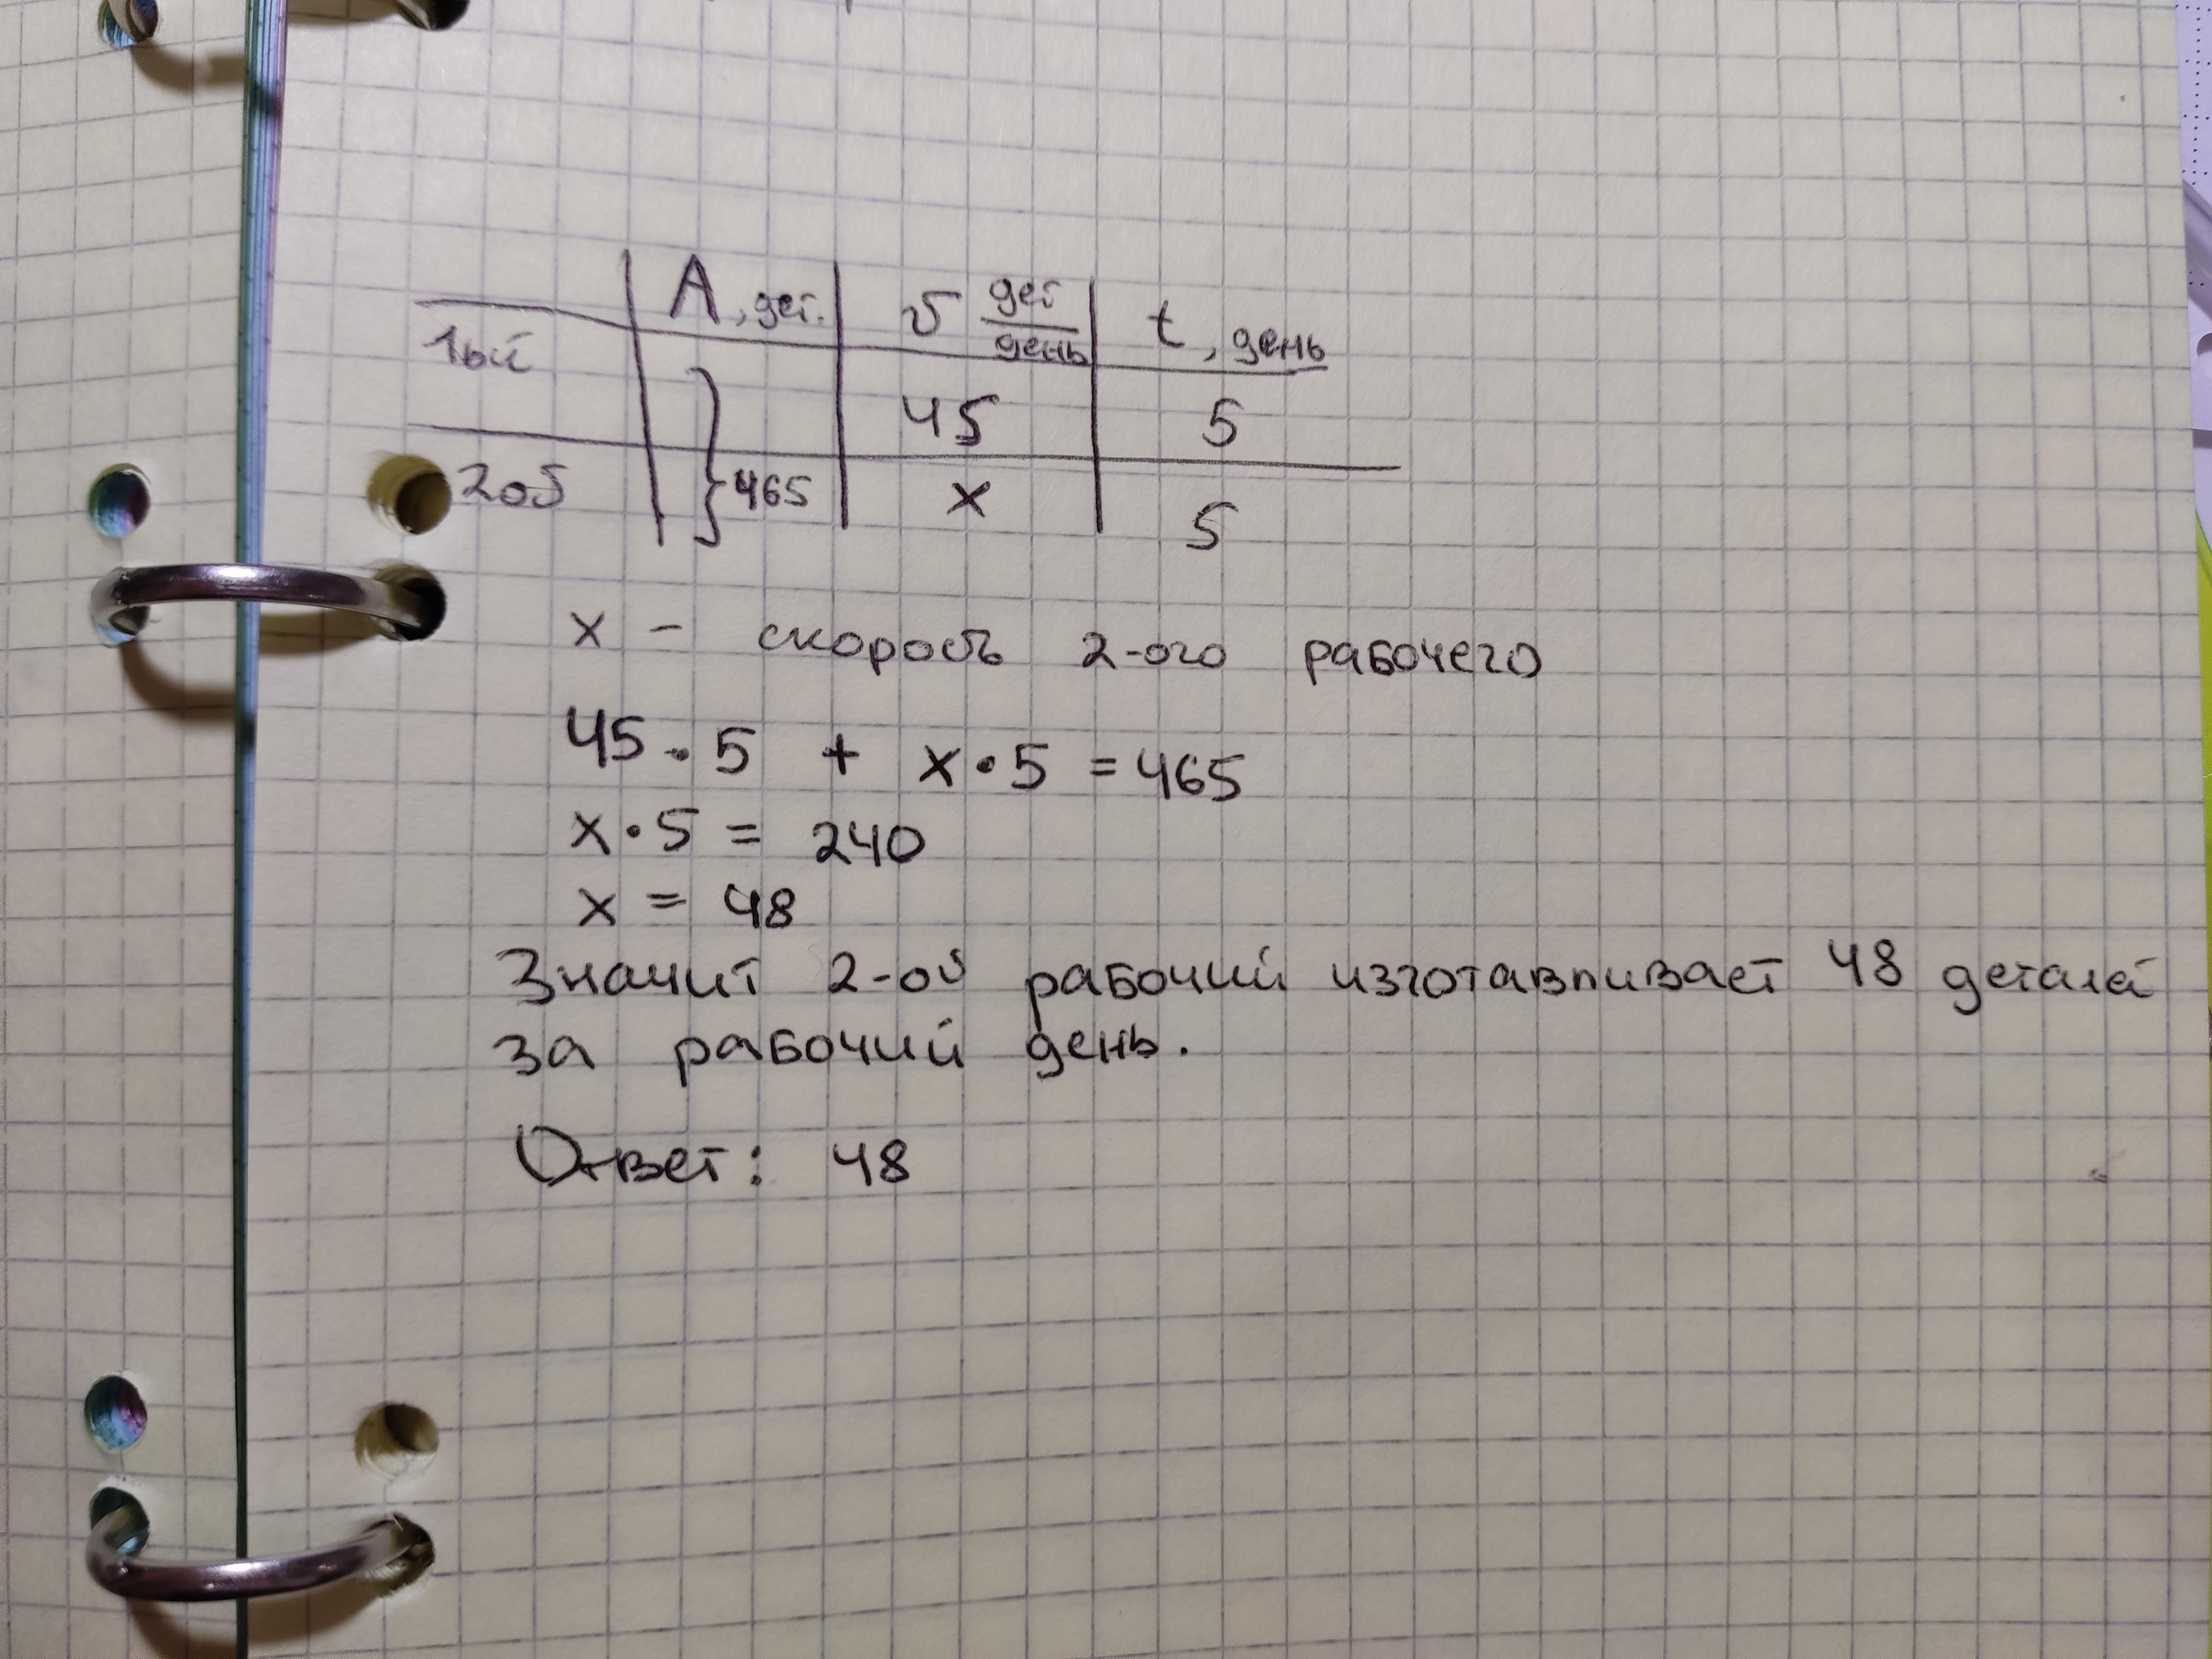 A, дет. v дет/день t, день
1ый 45 5
2ой }465 x 5
x - скорость 2-ого рабочего
45·5 + x·5 = 465
x·5 = 240
x = 48
Значит 2-ой рабочий изготавливает 48 деталей
за рабочий день.
Ответ: 48